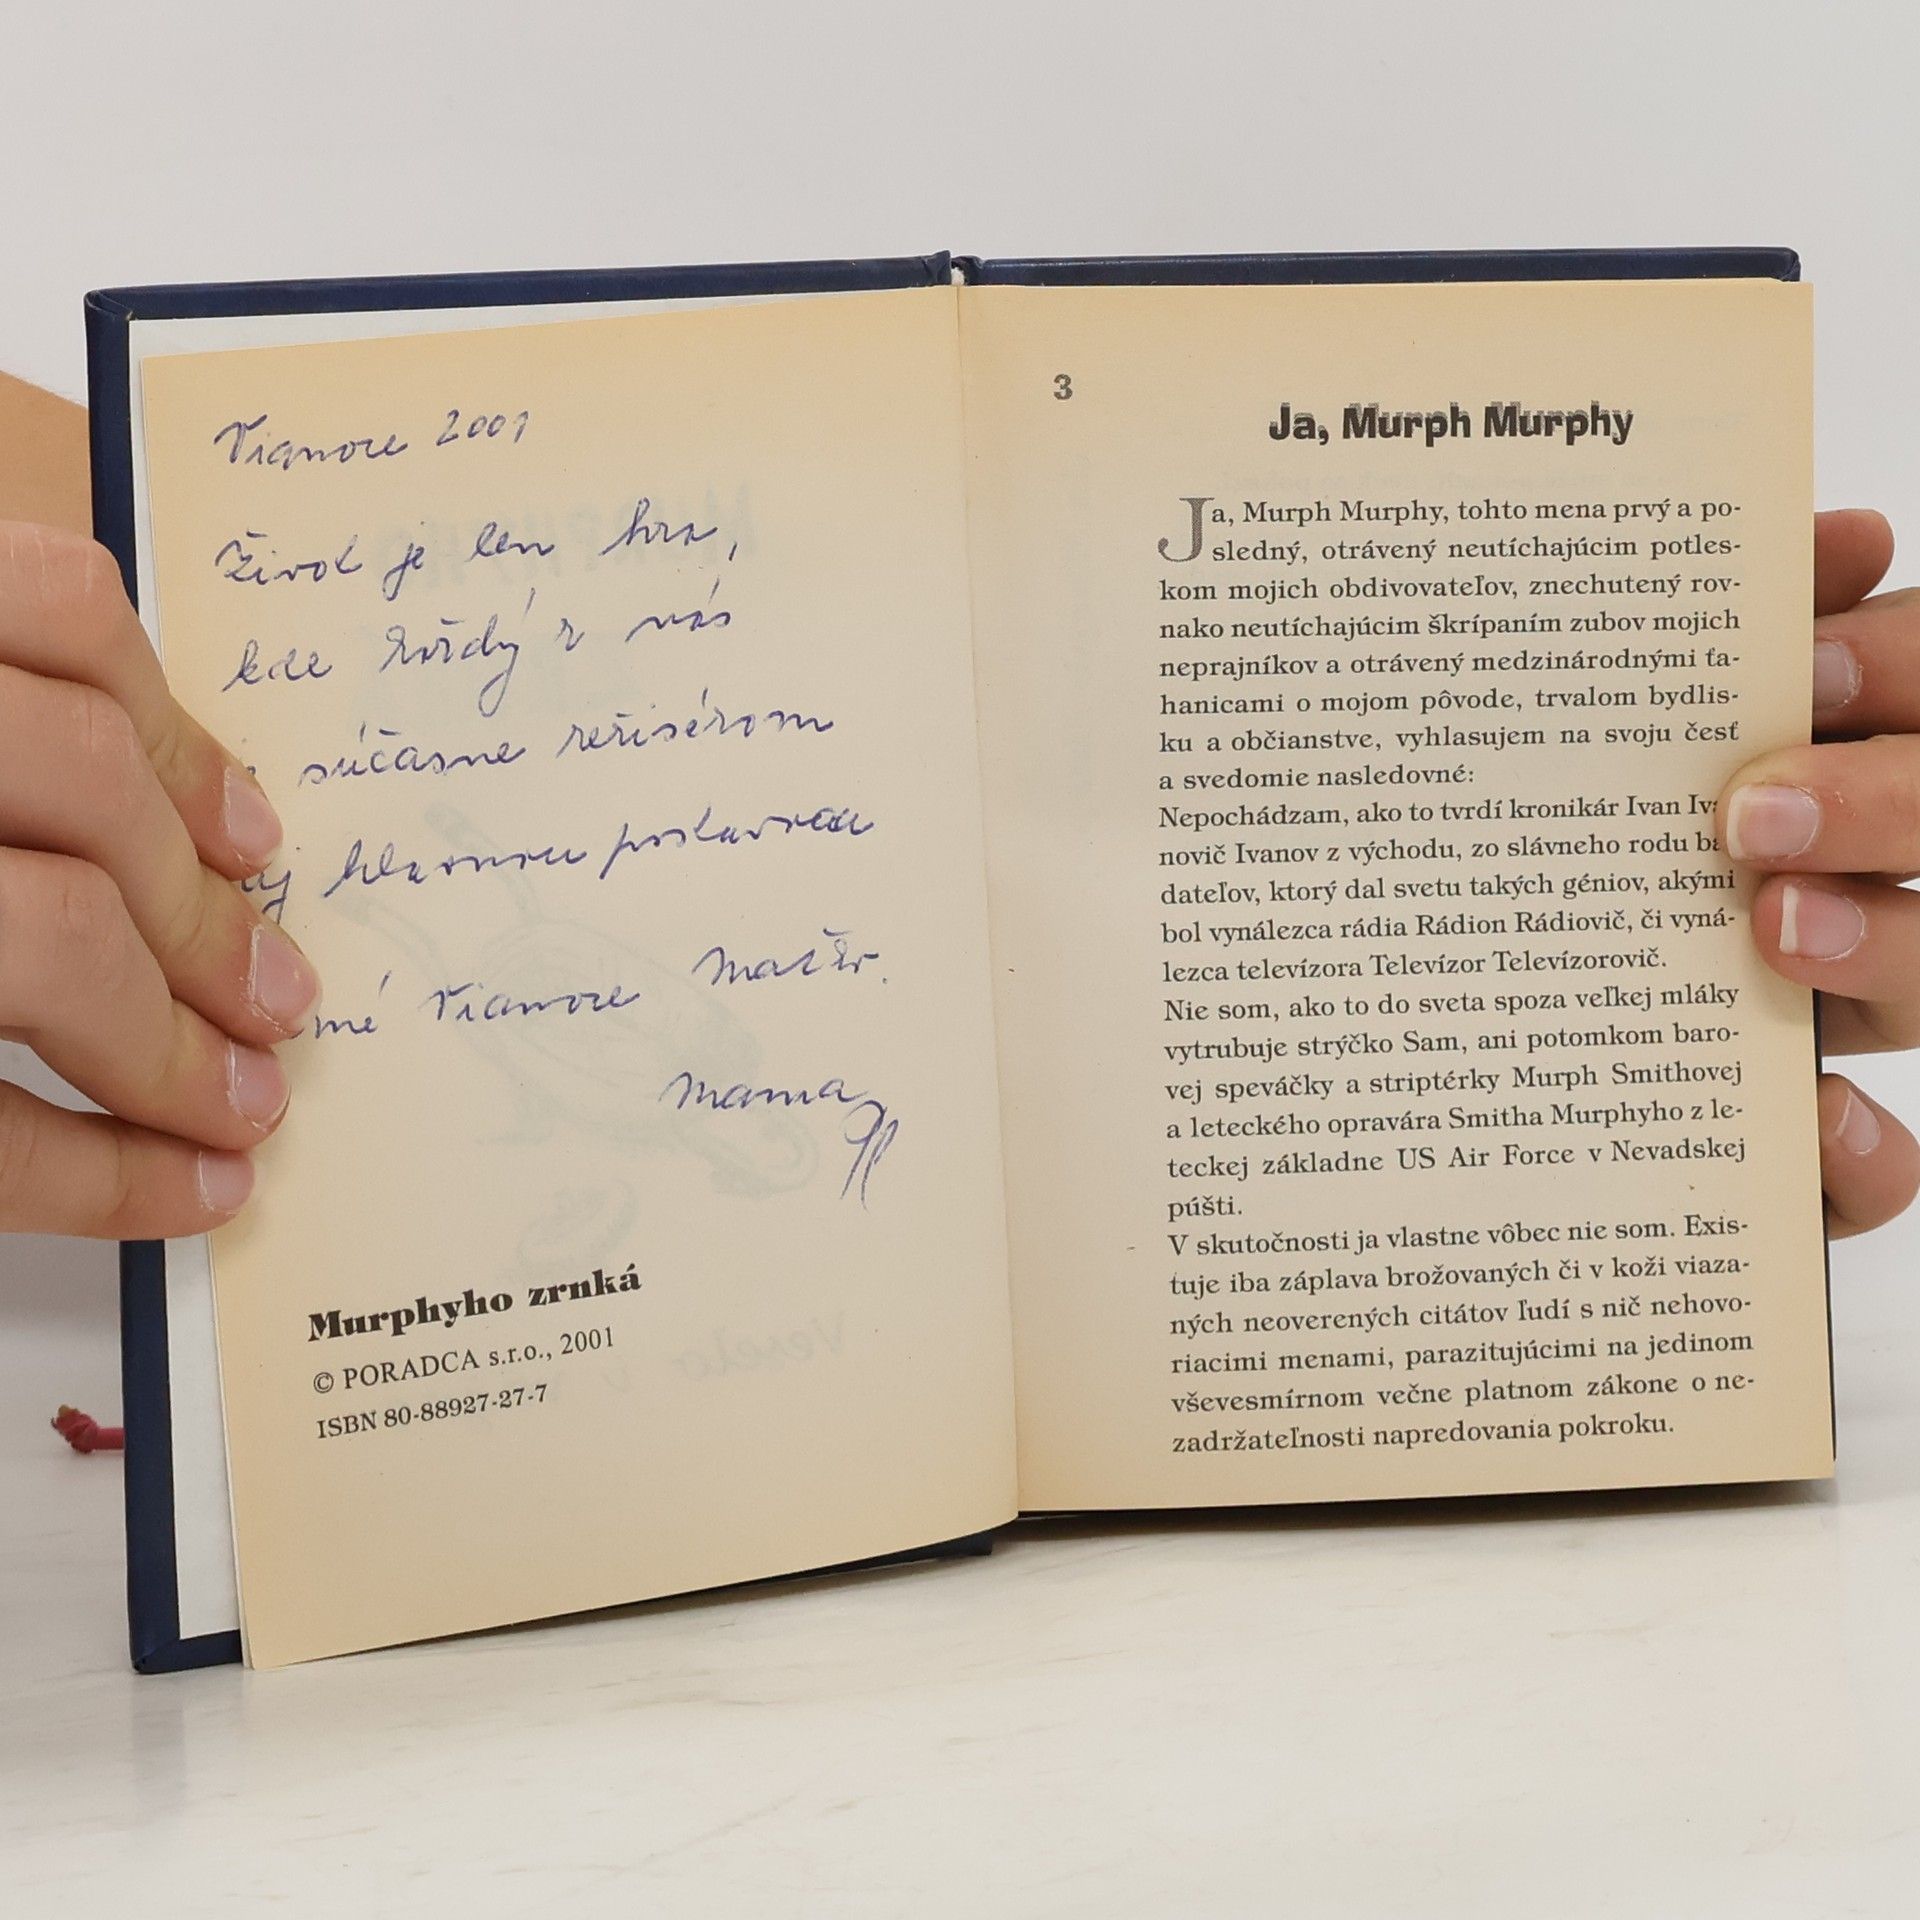 Vianoce 2001
Život je len hra,
kde každý z nás
súčasne režisérom
aj hlavnou postavou
Vianoce
mama
Murphyho zrnká
© PORADCA s.r.o., 2001
ISBN 80-88927-27-7
3
Ja, Murph Murphy
Ja, Murph Murphy, tohto mena prvý a po-
sledný, otrávený neutíchajúcim potles-
kom mojich obdivovateľov, znechutený rov-
nako neutíchajúcim škrípaním zubov mojich
neprajníkov a otrávený medzinárodnými ťa-
hanicami o mojom pôvode, trvalom bydlis-
ku a občianstve, vyhlasujem na svoju česť
a svedomie nasledovné:
Nepochádzam, ako to tvrdí kronikár Ivan Iva-
novič Ivanov z východu, zo slávneho rodu bá-
dateľov, ktorý dal svetu takých géniov, akými
bol vynálezca rádia Rádion Rádiovič, či vyná-
lezca televízora Televízor Televízorovič.
Nie som, ako to do sveta spoza veľkej mláky
vytrubuje strýčko Sam, ani potomkom baro-
vej speváčky a striptérky Murph Smithovej
a leteckého opravára Smitha Murphyho z le-
teckej základne US Air Force v Nevadskej
púšti.
V skutočnosti ja vlastne vôbec nie som. Exis-
tuje iba záplava brožovaných či v koži viaza-
ných neoverených citátov ľudí s nič nehovo-
riacimi menami, parazitujúcimi na jedinom
vševesmírnom večne platnom zákone o ne-
zadržateľnosti napredovania pokroku.